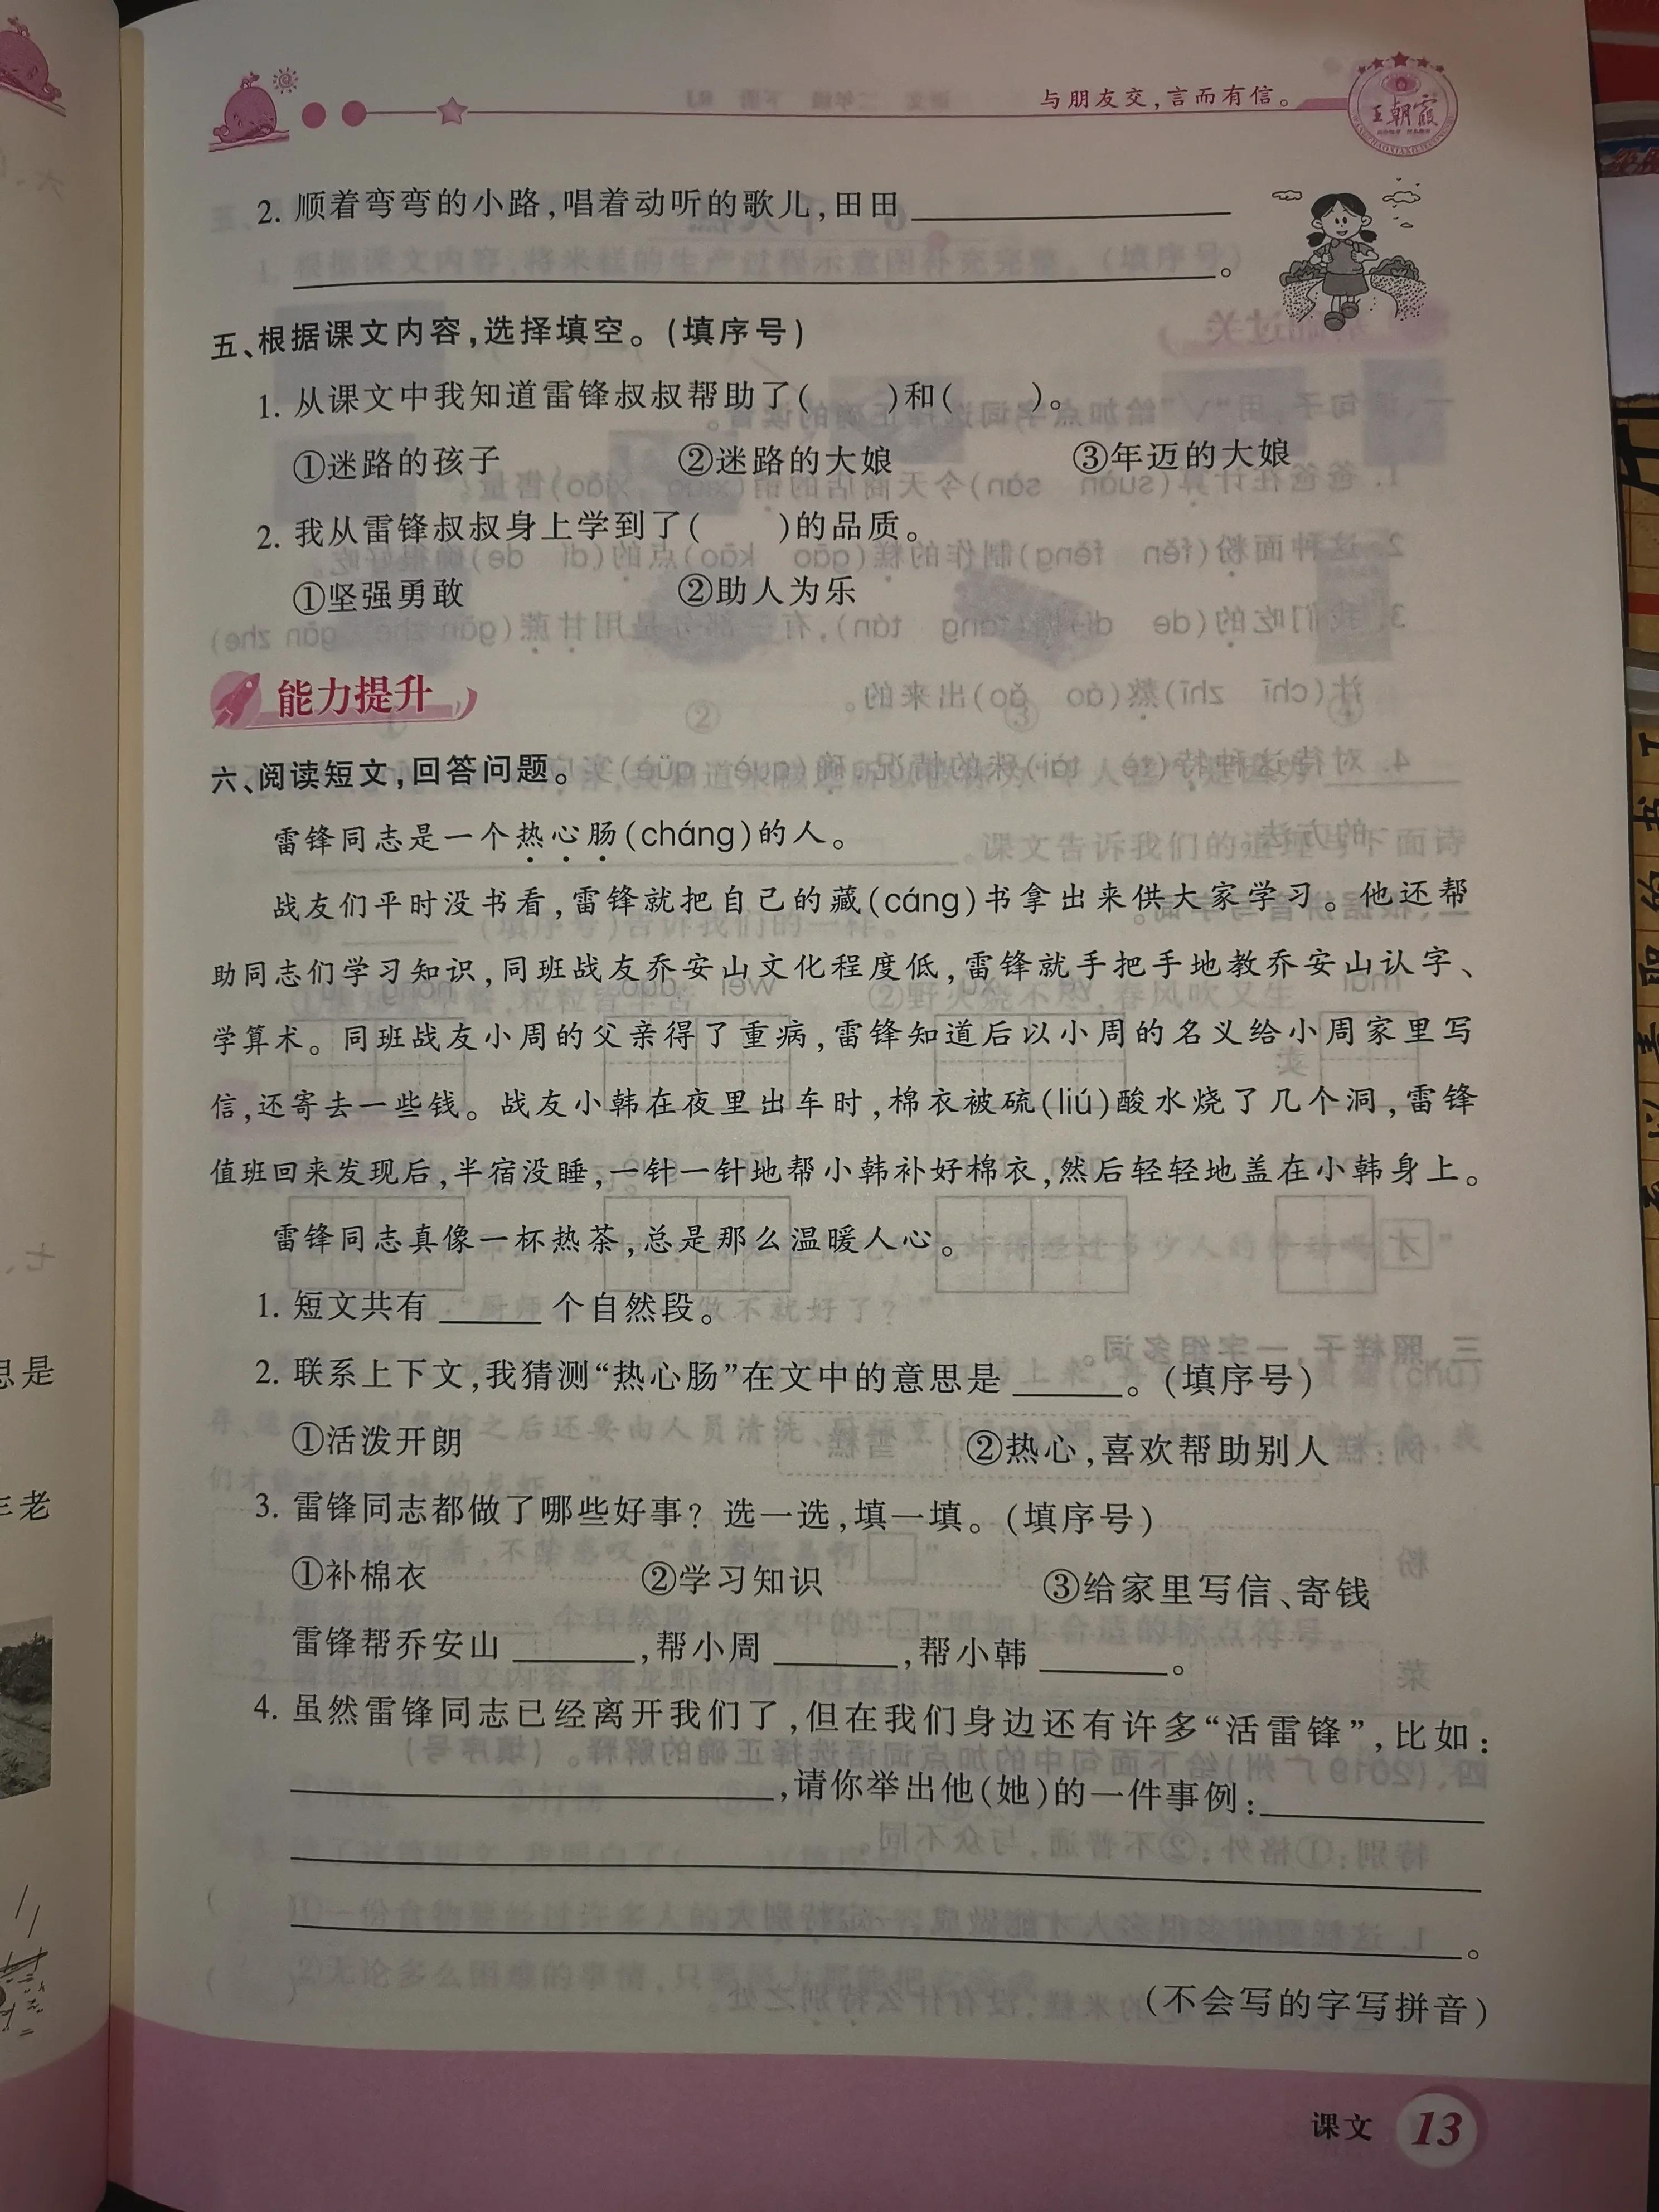 与朋友交，言而有信。
王朝霞
2. 顺着弯弯的小路，唱着动听的歌儿，田田__________
__________。
五、根据课文内容，选择填空。（填序号）
1. 从课文中我知道雷锋叔叔帮助了(　　)和(　　)。
①迷路的孩子　②迷路的大娘　③年迈的大娘
2. 我从雷锋叔叔身上学到了(　　)的品质。
①坚强勇敢　②助人为乐
能力提升
六、阅读短文，回答问题。
雷锋同志是一个热心肠(cháng)的人。
战友们平时没书看，雷锋就把自己的藏(cáng)书拿出来供大家学习。他还帮
助同志们学习知识，同班战友乔安山文化程度低，雷锋就手把手地教乔安山认字、
学算术。同班战友小周的父亲得了重病，雷锋知道后以小周的名义给小周家里写
信，还寄去一些钱。战友小韩在夜里出车时，棉衣被硫(liú)酸水烧了几个洞，雷锋
值班回来发现后，半宿没睡，一针一针地帮小韩补好棉衣，然后轻轻地盖在小韩身上。
雷锋同志真像一杯热茶，总是那么温暖人心。
1. 短文共有______个自然段。
2. 联系上下文，我猜测“热心肠”在文中的意思是______。（填序号）
①活泼开朗　②热心，喜欢帮助别人
3. 雷锋同志都做了哪些好事？选一选，填一填。（填序号）
①补棉衣　②学习知识　③给家里写信、寄钱
雷锋帮乔安山______，帮小周______，帮小韩______。
4. 虽然雷锋同志已经离开我们了，但在我们身边还有许多“活雷锋”，比如：
__________，请你举出他(她)的一件事例：__________
__________
__________。
（不会写的字写拼音）
课文 13
思是
老